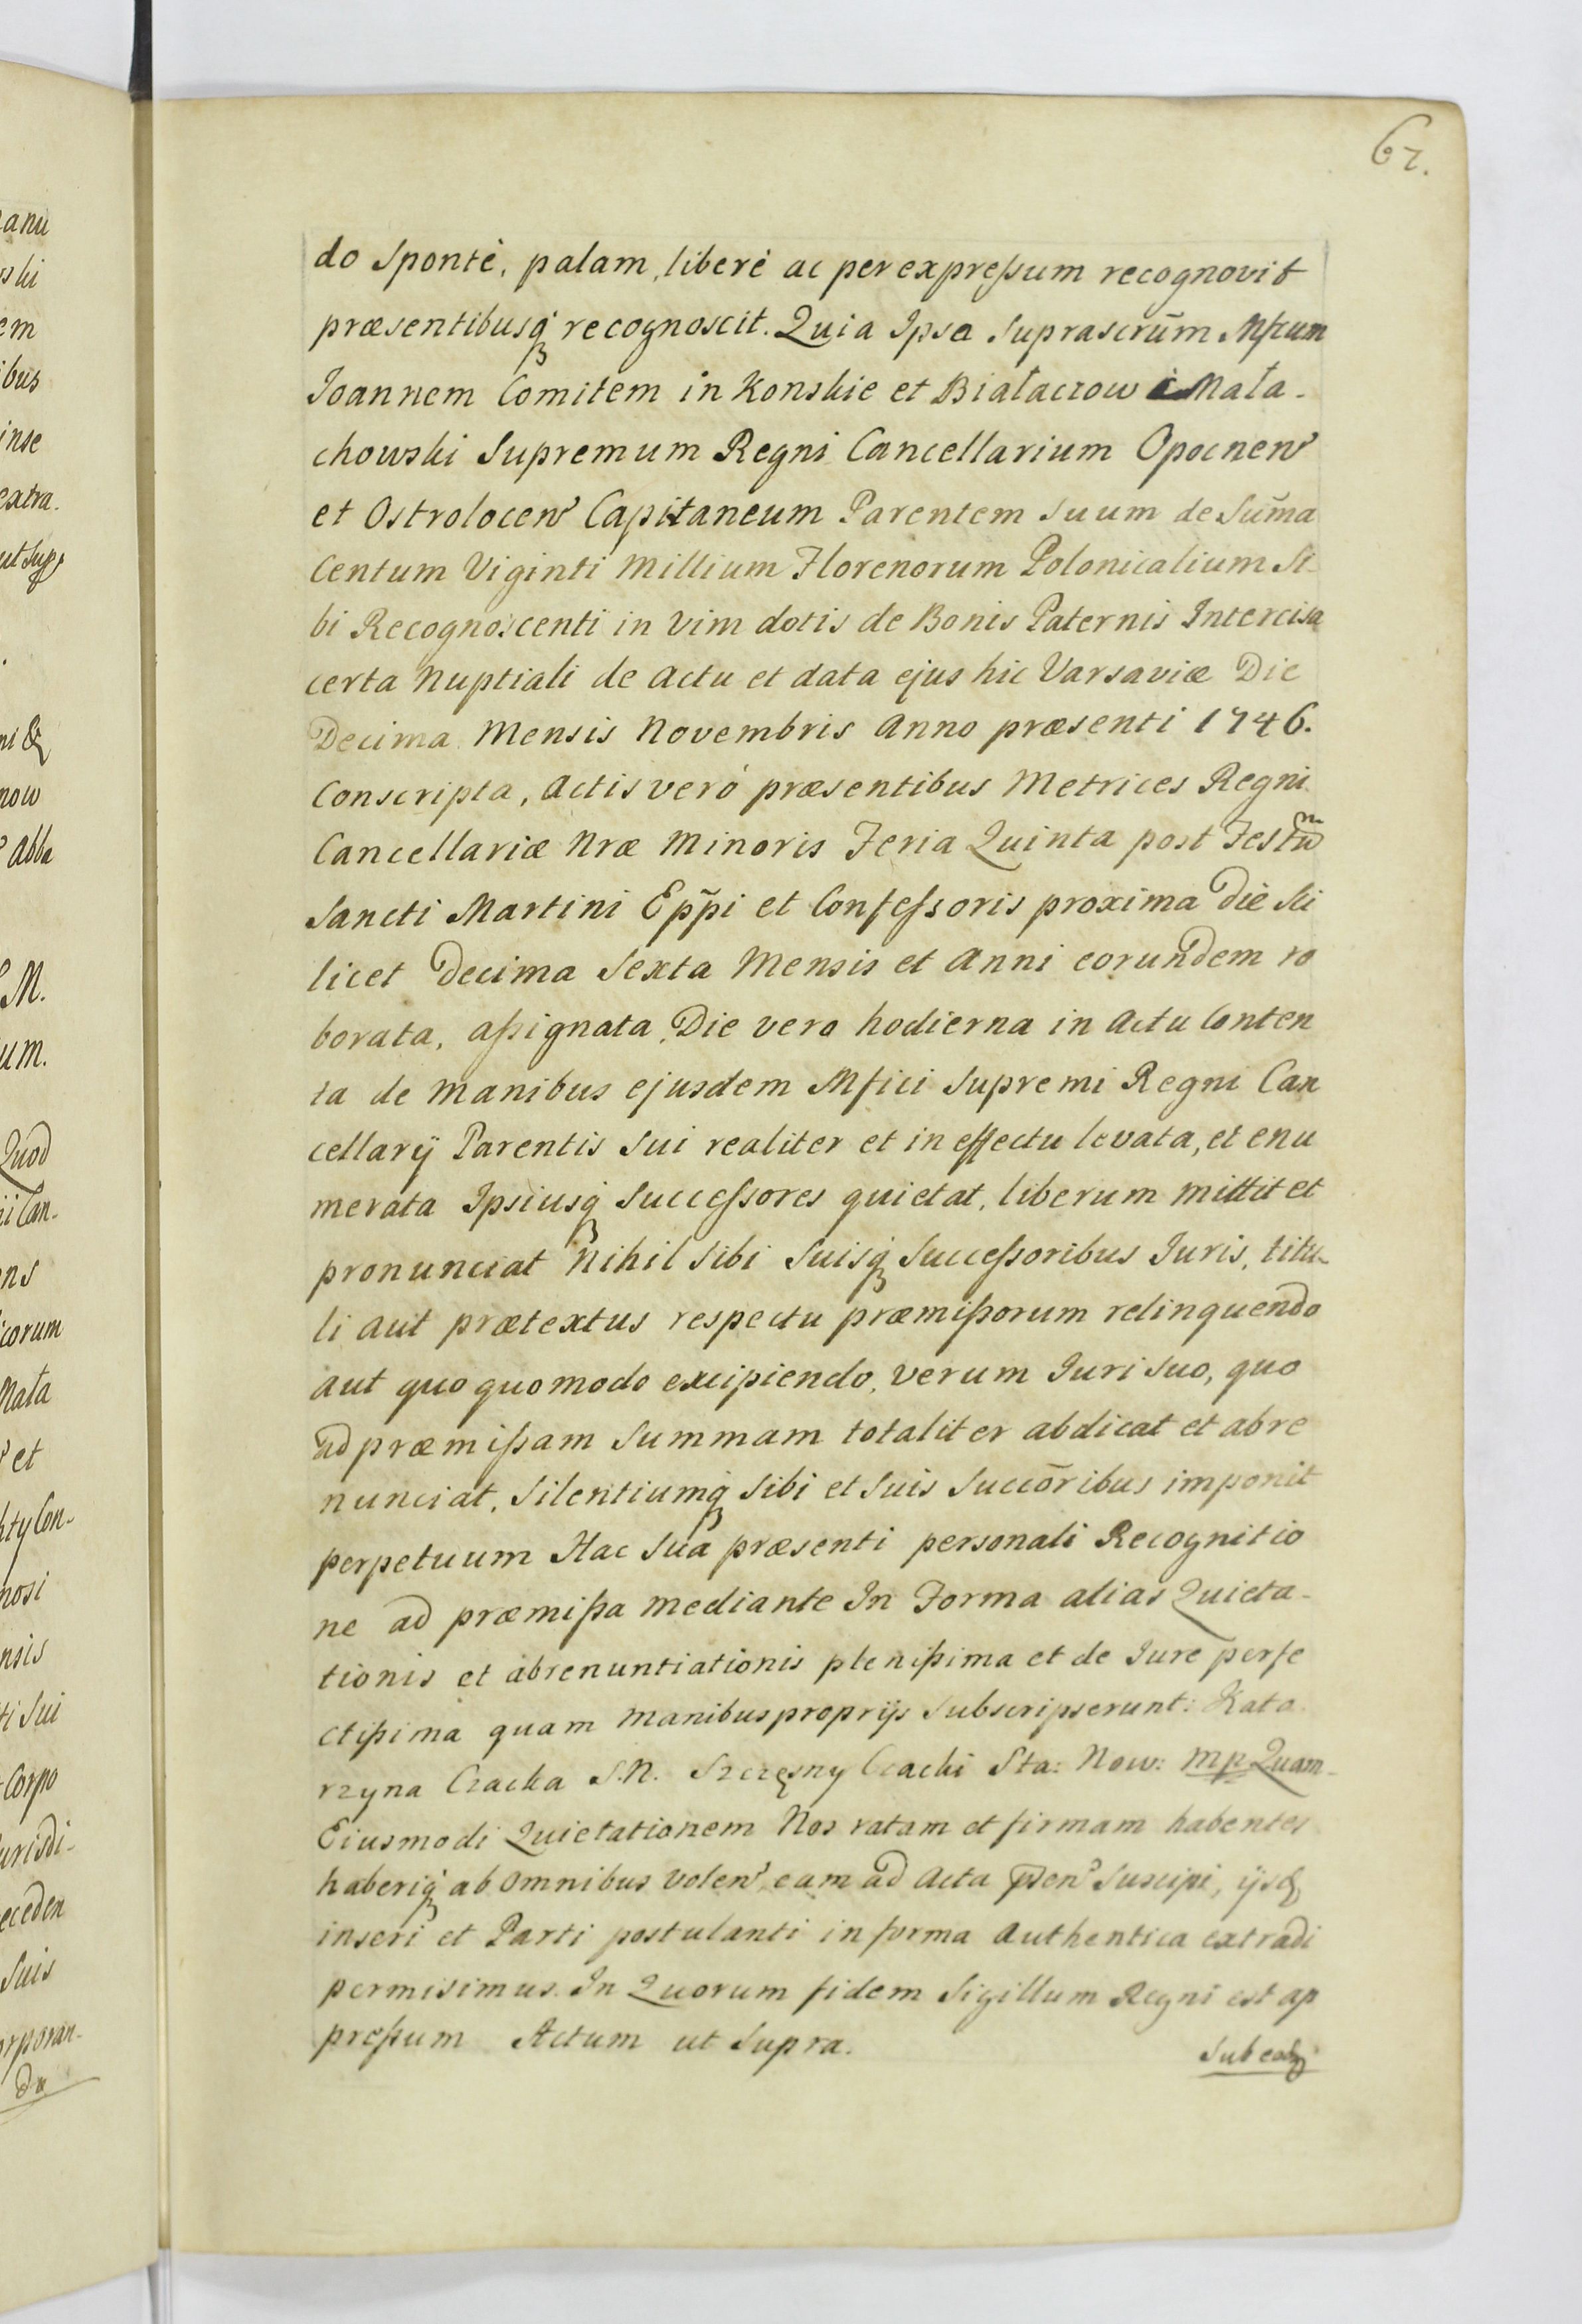 67.
do Sponté, palam, liberé ac per expreſsum recognovit
præsentibusq́ recognoscit. Quia Ipsa Suprascrūm Mfcum
Ioannem Comitem in Konskie et Białaczow Mała-
chowski Supremum Regni Cancellarium Opocnen
et Ostrolocen Capitaneum Parentem suum de Sum̄a
Centum Viginti Millium Florenorum Polonicalium Si
bi Recognoscenti in Vim dotis de Bonis Paternis Intercisa
certa Nuptiali de Actu et data ejus hic Varsaviæ Die
Decima Mensis Novembris Anno præsenti 1746.
Conscripta, Actis veró præsentibus Metrices Regni
Cancellariæ Nræ Minoris Feria Quinta post Festum
Sancti Martini Epp̄i et Confeſsoris proxima Die Sci
licet Decima Sexta Mensis et Anni eorundem ro
borata, aſsignata, Die vero hodierna in Actu Conten
ta de Manibus ejusdem Mfici Supremi Regni Can
cellarÿ Parentis Sui realiter et in effectu levata, et enu
merata Ipsiusq́ Succeſsores quietat, liberum mittit et
pronunciat Nihil Sibi Suisq́ Succeſsoribus Iuris, titu-
li aut prætextus respectu præmiſsorum relinquendo
aut quoquomodo excipiendo, verum Iuri suo, quo
ad præmiſsam Summam totaliter abdicat et abre
nunciat, Silentiumq́ Sibi et Suis Succōribus imponit
perpetuum Hac Sua præsenti personali Recognitio
ne ad præmiſsa mediante In Forma alias Quieta-
tionis et abrenuntiationis pleniſsima et de Iure perfe
ctiſsima quam Manibus proprÿs Subscripserunt: Kata
rzyna Czacka S.N. Szczęsny Czacki Sta: Now: mp Quam
Eiusmodi Quietationem Nos ratam et firmam habentes
haberiq́ ab omnibus volen, eam ad Acta p̄sen Suscipi, ijsq
inseri et Parti postulanti in forma Authentica extradi
permisimus. In Quorum fidem Sigillum Regni est ap
preſsum Actum ut Supra.
Sub eadq